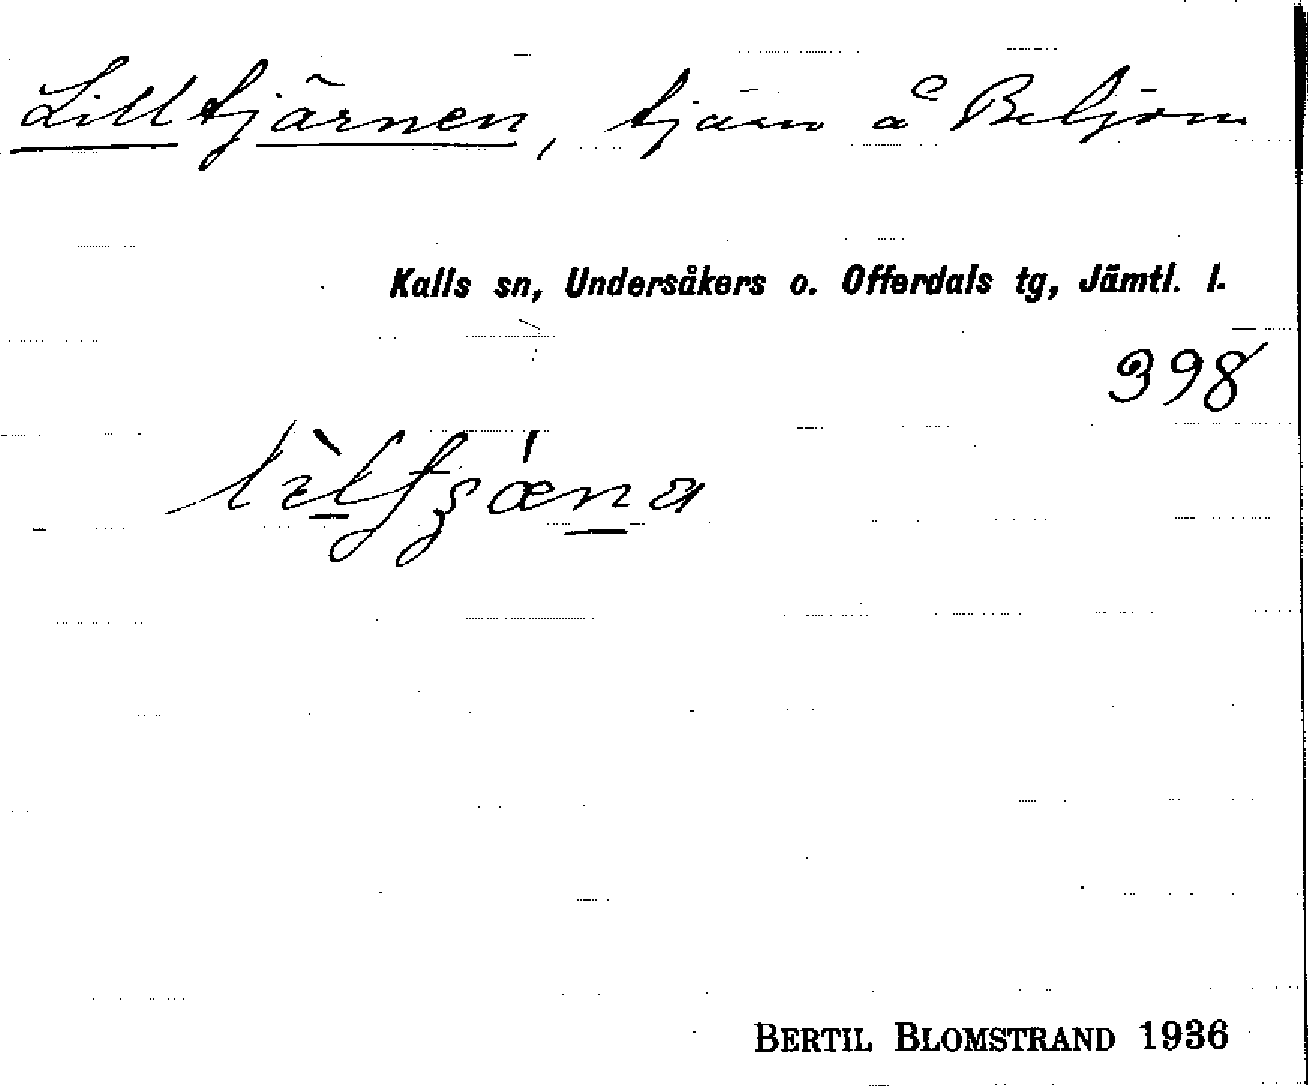 Lilltjärnen, tjärn å Beljom
Kalls sn, Undersåkers o. Offerdals tg, Jämtl. l.
398
BERTIL BLOMSTRAND 1936